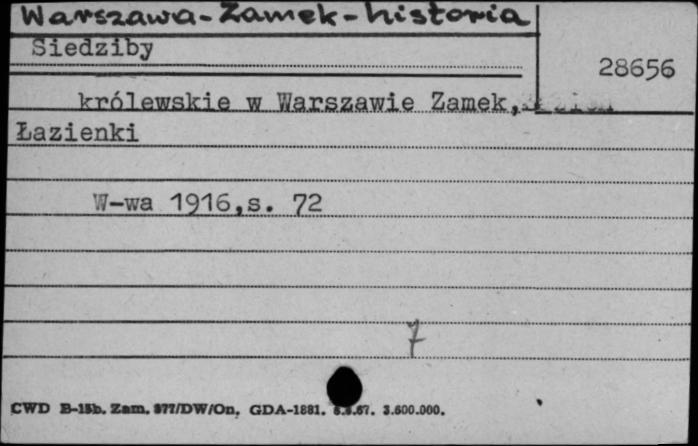 Warszawa-Zamek-historia
Siedziby
28656
królewskie w Warszawie Zamek,
Łazienki
W-wa 1916,s. 72
7
CWD B-15b. Zam. 877/DW/On. GDA-1881. 8.8.67. 3.600.000.